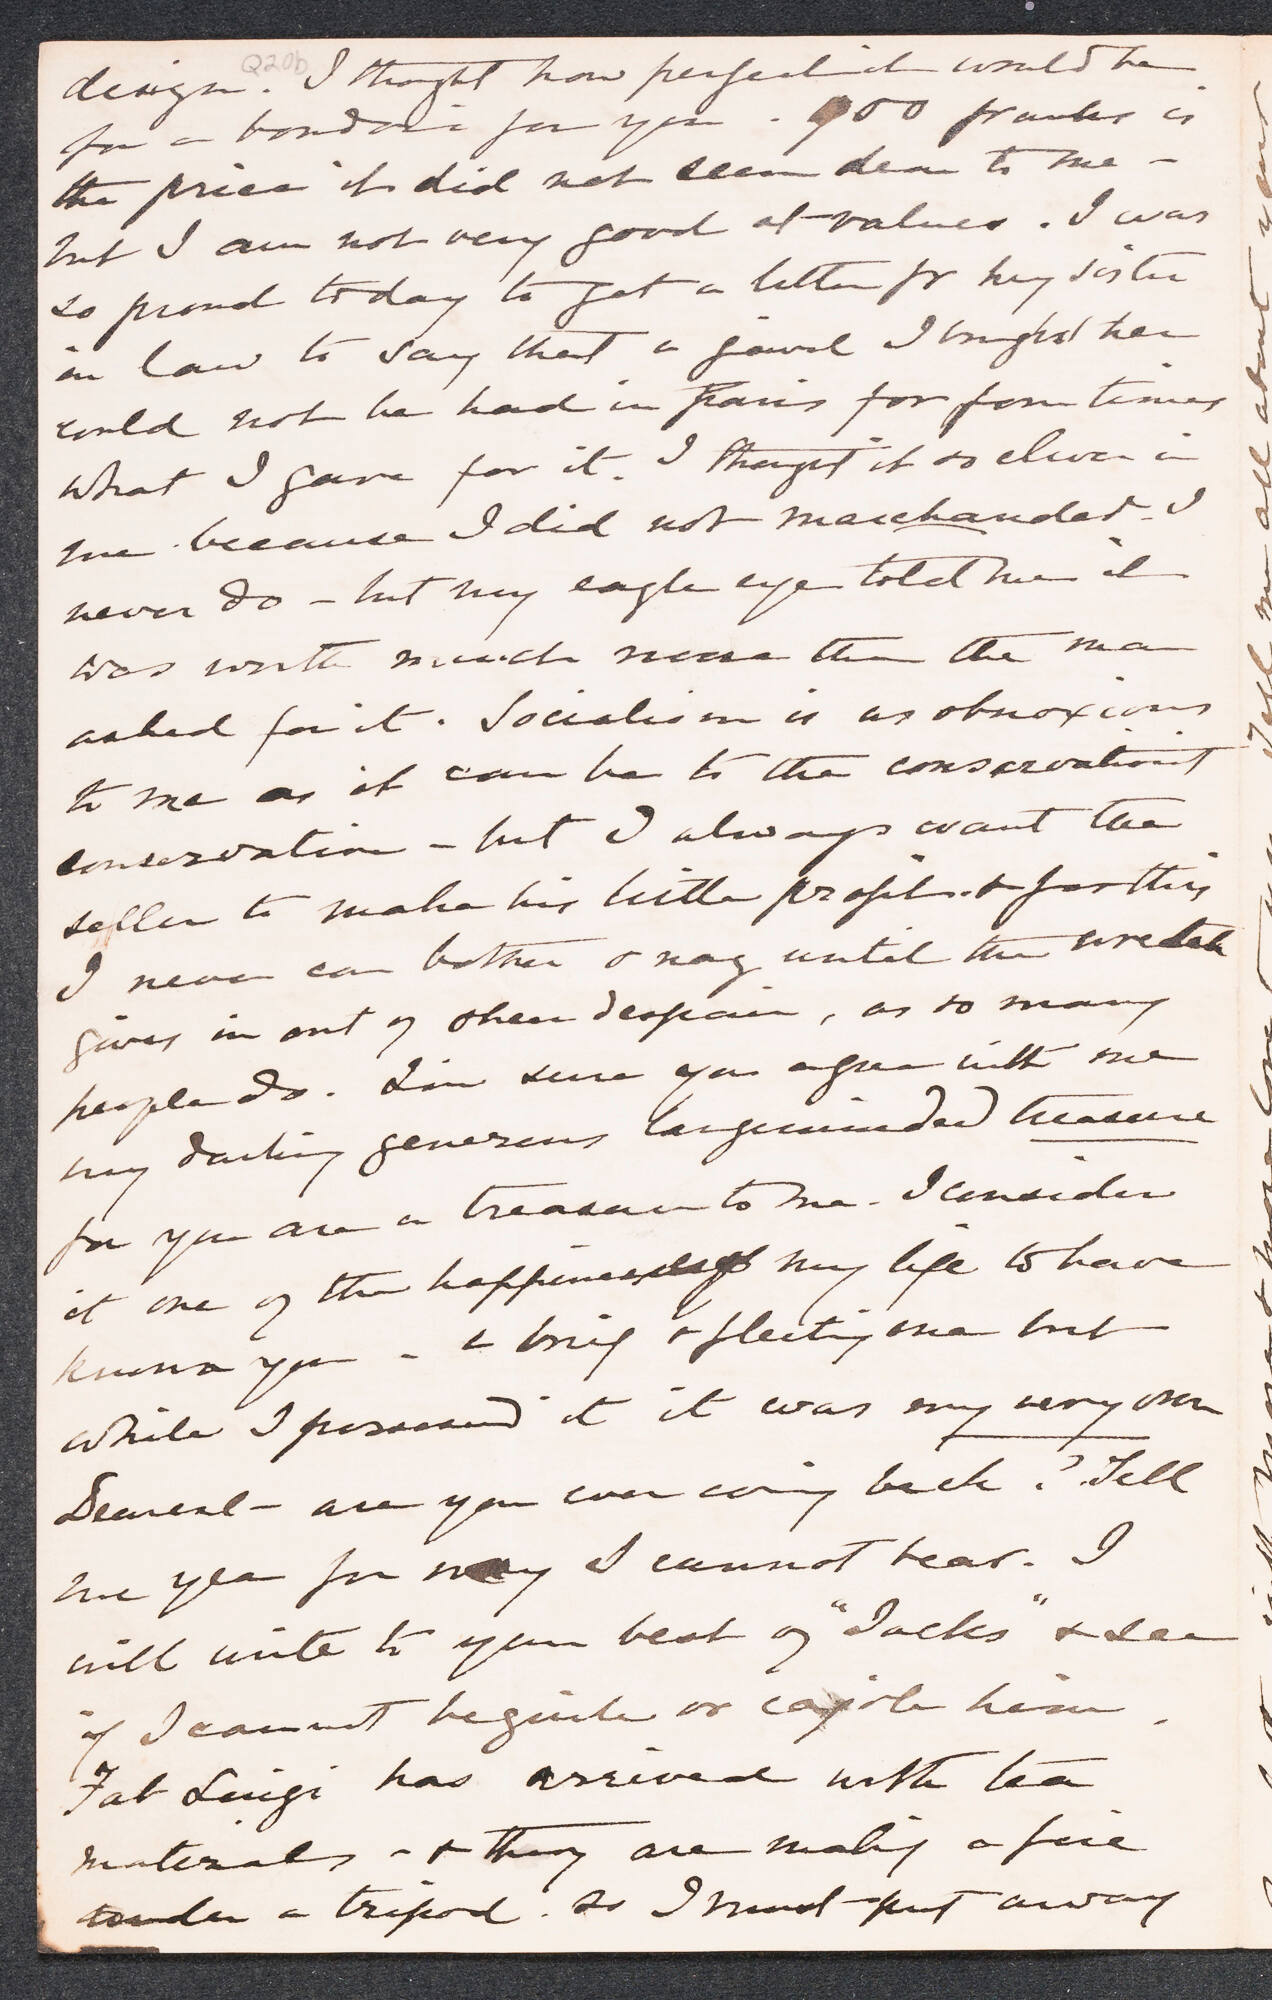 Q20b
design. I thought how perfect it would be
for a boudoir for you. 900 franks is
the price it did not seem dear to me –
but I am not very good at values. I was
so proud today to get a letter fr my sister
in law to say that a jewel I bought her
could not be had in Paris for four times
what I gave for it. I thought it so clever in
me because I did not marchander. I
never do – but my eagle eye told me it
was worth much more than the man
asked for it. Socialism is as obnoxious
to me as it can be to the conservativist
conservation – but I always want the
seller to make his little profit & for this
I never can bother & nag until the wretch
gives in out of sheer despair, as so many
people do. I'm sure you agree with me
my darling generous largeminded treasure
for you are a treasure to me. I consider
it one of the happinesses of my life to have
known you – a brief & fleeting one but
while I possessed it it was my very own
Dearest – are you ever coming back? Tell
me yea for nay I cannot bear. I
will write to your best of "Jacks" & see
if I cannot beguile or cajole him.
Fat Luigi has arrived with tea
materials – & they are making a fire
under a tripod. So I must put away
Tell me all about your